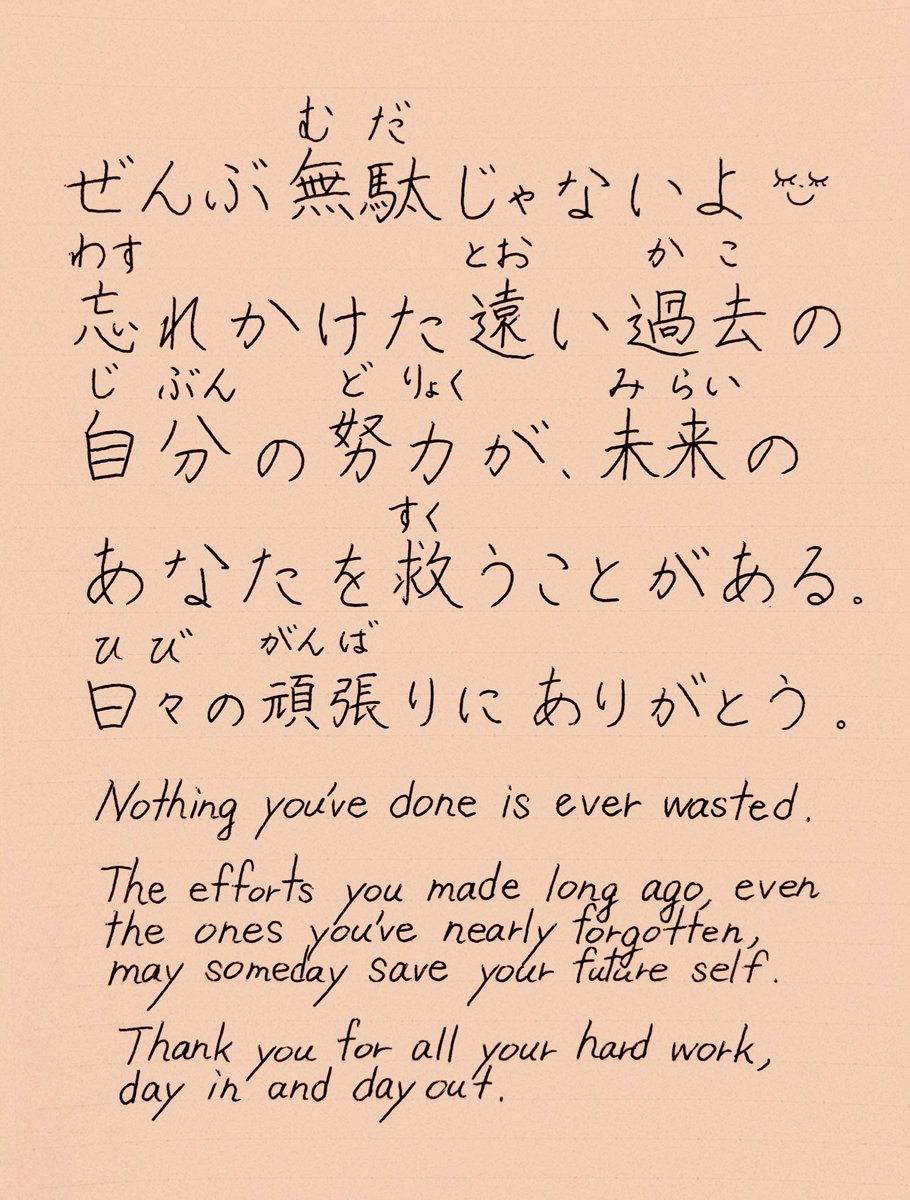 むだ
ぜんぶ無駄じゃないよ
わす とお かこ
忘れかけた遠い過去の
じ ぶん ど りょく みらい
自分の努力が、未来の
すく
あなたを救うことがある。
ひび がんば
日々の頑張りにありがとう。
Nothing you've done is ever wasted.
The efforts you made long ago, even
the ones you've nearly forgotten,
may someday save your future self.
Thank you for all your hard work,
day in and day out.